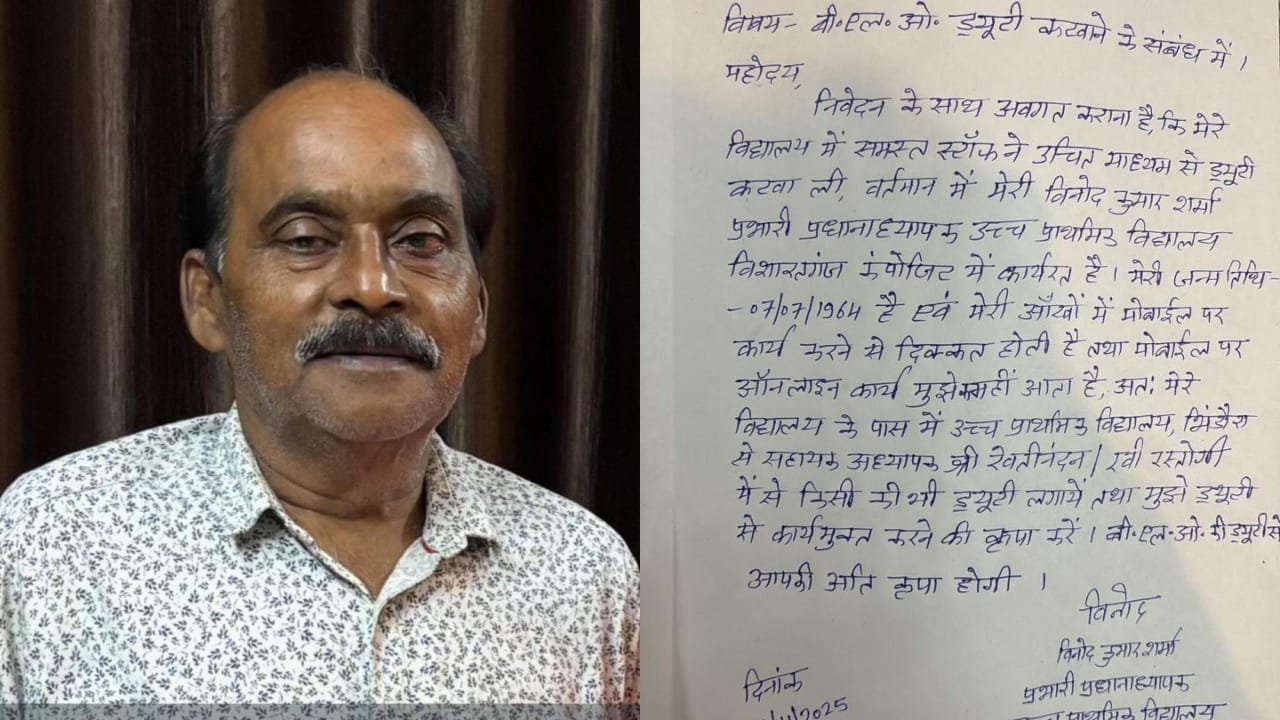 विषय- बी.एल.ओ. ड्यूटी कटवाने के संबंध में।
महोदय,
निवेदन के साथ अवगत कराना है, कि मेरे
विद्यालय में समस्त स्टॉफ ने उचित माध्यम से ड्यूटी
कटवा ली, वर्तमान में मेरी विनोद कुमार शर्मा
प्रभारी प्रधानाध्यापक उच्च प्राथमिक विद्यालय
विशारतगंज कंपोजिट में कार्यरत है। मेरी जन्म तिथि-
-07/07/1964 है एवं मेरी आँखों में मोबाईल पर
कार्य करने से दिक्कत होती है तथा मोबाईल पर
ऑनलाइन कार्य मुझे नहीं आता है, अतः मेरे
विद्यालय के पास में उच्च प्राथमिक विद्यालय,
से सहायक अध्यापक श्री रेवतीनंदन/रवी रस्तोगी
में से किसी की भी ड्यूटी लगायें तथा मुझे ड्यूटी
से कार्यमुक्त करने की कृपा करें। बी.एल.ओ. की ड्यूटी से
आपकी अति कृपा होगी।
विनोद
विनोद कुमार शर्मा
दिनांक
प्रभारी प्रधानाध्यापक
/11/2025
उच्च प्राथमिक विद्यालय